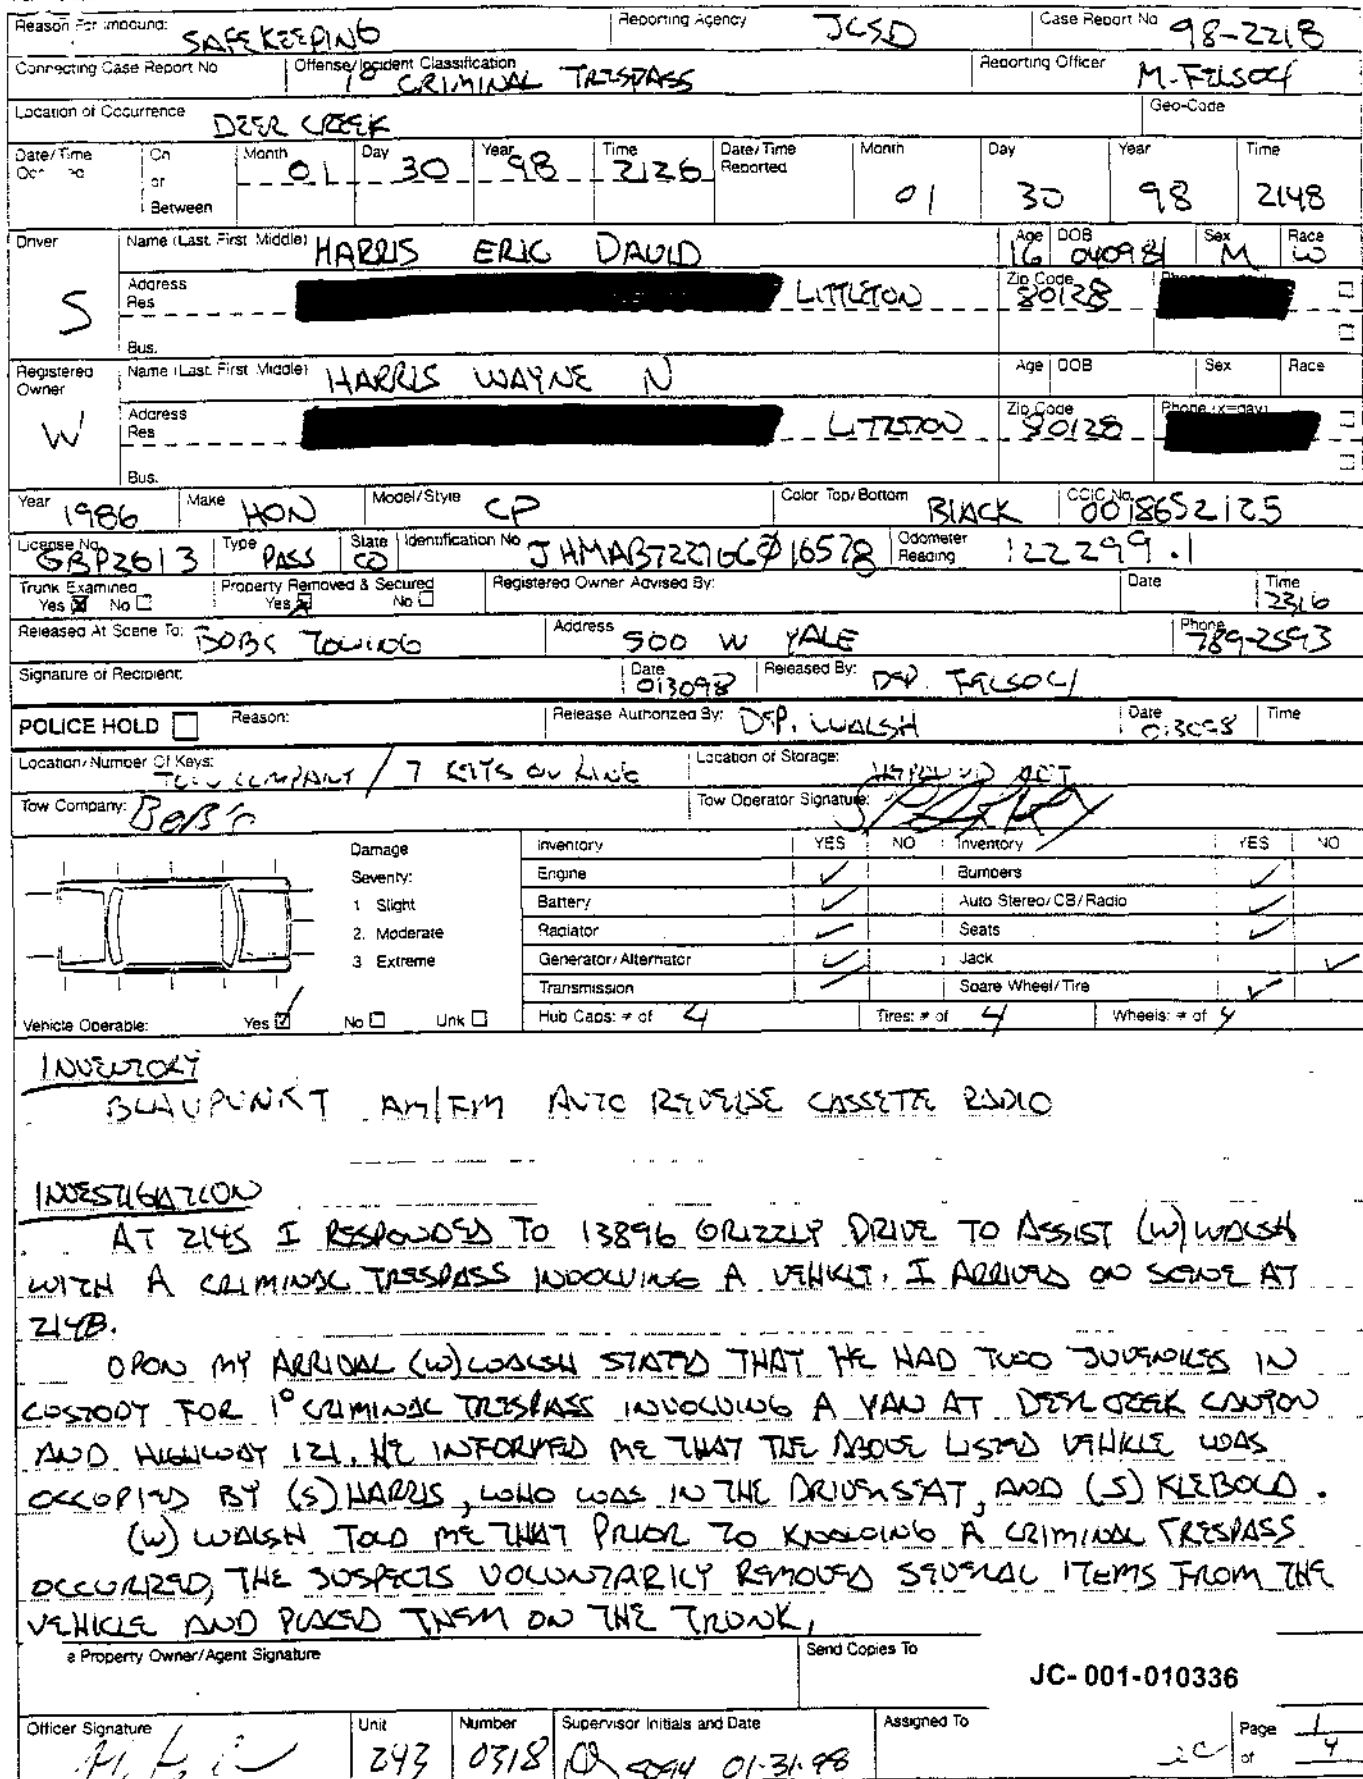 Reason For Impound: SAFEKEEPING Reporting Agency JCSD Case Report No 98-2218
Connecting Case Report No Offense/Incident Classification 1° CRIMINAL TRESPASS Reporting Officer M. FELSOCI
Location of Occurrence DEER CREEK Geo-Code
Date/Time On or Between Month 01 Day 30 Year 98 Time 2126 Date/Time Reported Month 01 Day 30 Year 98 Time 2148
Driver Name (Last, First Middle) HARRIS ERIC DAVID Age 16 DOB 040981 Sex M Race W
S Address Res LITTLETON Zip Code 80128
Bus.
Registered Owner Name (Last, First Middle) HARRIS WAYNE N Age DOB Sex Race
W Address Res LITTLETON Zip Code 80128 Phone (x=day)
Bus.
Year 1986 Make HON Model/Style CP Color Top/Bottom BLACK CCIC No. 0018652125
License No GBP2613 Type PASS State CO Identification No Odometer Reading 122299.1
Trunk Examined Yes No Property Removed & Secured Yes No Registered Owner Advised By: Date Time 2316
Released At Scene To: BOBS TOWING Address 500 W YALE Phone 789-2593
Signature of Recipient: Date 013098 Released By: DEP. FELSOCI
POLICE HOLD Reason: Release Authorized By: DEP. WALSH Date 013098 Time
Location/Number Of Keys: TOW COMPANY / 7 KEYS ON RING Location of Storage: IMPOUND LOT
Tow Company: BOB'S Tow Operator Signature:
Damage Severity: 1 Slight 2. Moderate 3 Extreme
Inventory YES NO Inventory YES NO
Engine Bumpers
Battery Auto Stereo/CB/Radio
Radiator Seats
Generator/Alternator Jack
Transmission Spare Wheel/Tire
Vehicle Operable: Yes No Unk Hub Caps: # of 4 Tires: # of 4 Wheels: # of 4
INVENTORY
BLAUPUNKT AM/FM AUTO REVERSE CASSETTE RADIO
INVESTIGATION
AT 2145 I RESPONDED TO 13896 GRIZZLY DRIVE TO ASSIST (W) WALSH
WITH A CRIMINAL TRESPASS INVOLVING A VEHICLE. I ARRIVED ON SCENE AT
2148.
UPON MY ARRIVAL (W) WALSH STATED THAT HE HAD TWO JUVENILES IN
CUSTODY FOR 1° CRIMINAL TRESPASS INVOLVING A VAN AT DEER CREEK CANYON
AND HIGHWAY 121. HE INFORMED ME THAT THE ABOVE LISTED VEHICLE WAS
OCCUPIED BY (S) HARRIS, WHO WAS IN THE DRIVERS SEAT, AND (S) KLEBOLD.
(W) WALSH TOLD ME THAT PRIOR TO KNOWING A CRIMINAL TRESPASS
OCCURRED, THE SUSPECTS VOLUNTARILY REMOVED SEVERAL ITEMS FROM THE
VEHICLE AND PLACED THEM ON THE TRUNK.
Property Owner/Agent Signature Send Copies To
JC-001-010336
Officer Signature Unit 243 Number 0318 Supervisor Initials and Date 01-31-98 Assigned To Page 1 of 4